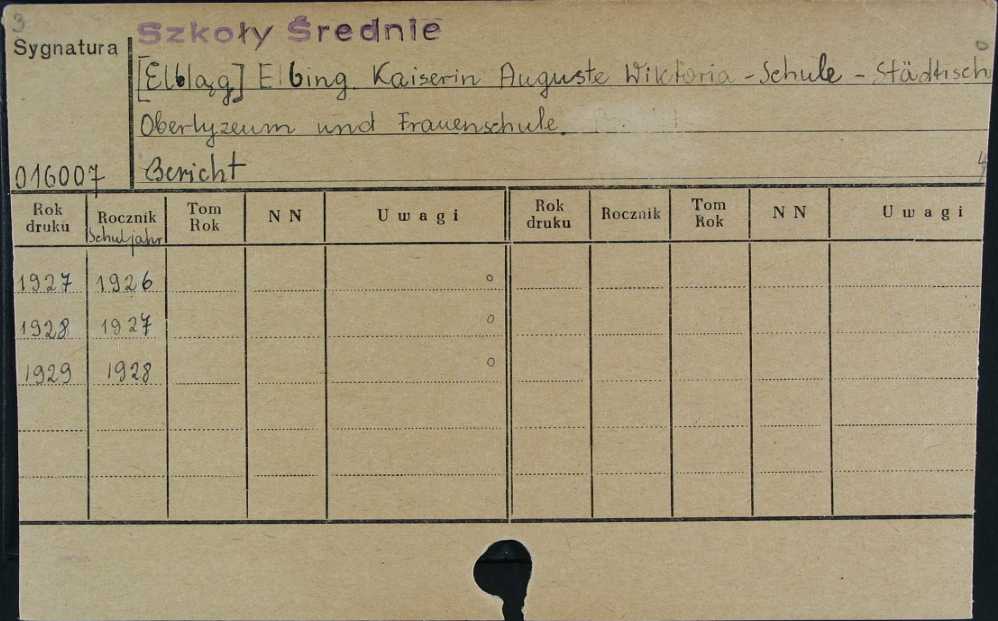 3
Szkoły Średnie
Sygnatura
[Elbląg] Elbing. Kaiserin Auguste Wiktoria - Schule - Städtisch
Oberlyzeum und Frauenschule.
016007
Bericht
4
Rok druku Rocznik Schuljahr Tom Rok NN Uwagi Rok druku Rocznik Tom Rok NN Uwagi
1927 1926 o
1928 1927 o
1929 1928 o